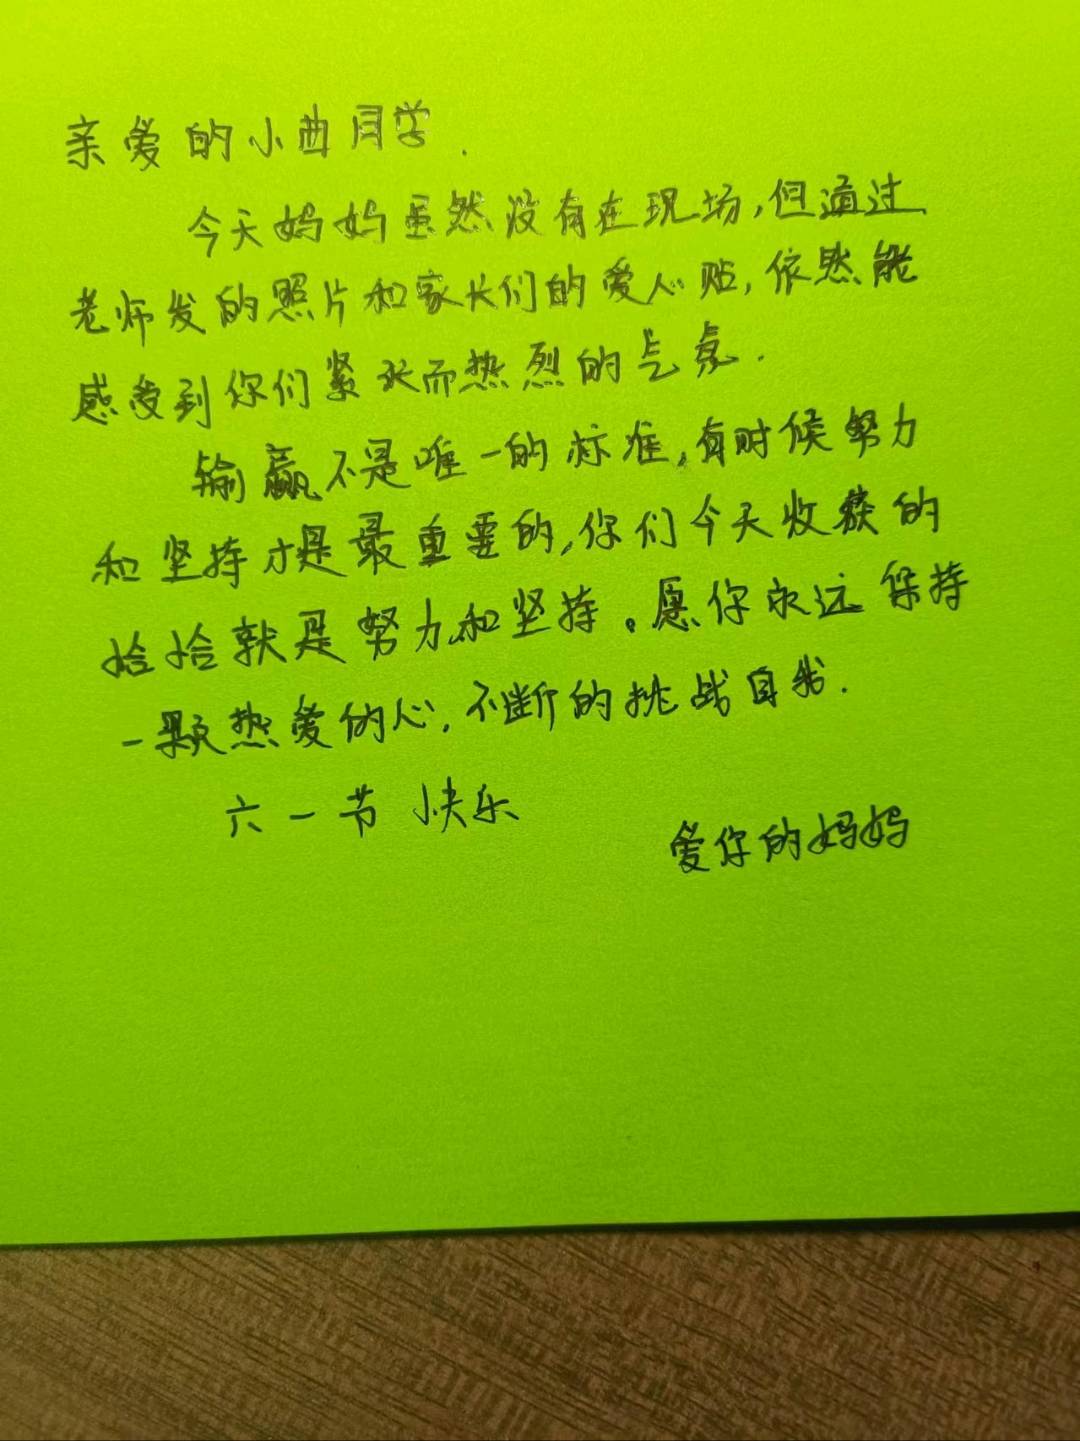 亲爱的小曲同学.
今天妈妈虽然没有在现场,但通过
老师发的照片和家长们的爱心贴,依然能
感受到你们紧张而热烈的气氛.
输赢不是唯一的标准,有时候努力
和坚持才是最重要的,你们今天收获的
恰恰就是努力和坚持。愿你永远保持
一颗热爱的心,不断的挑战自我.
六一节快乐
爱你的妈妈